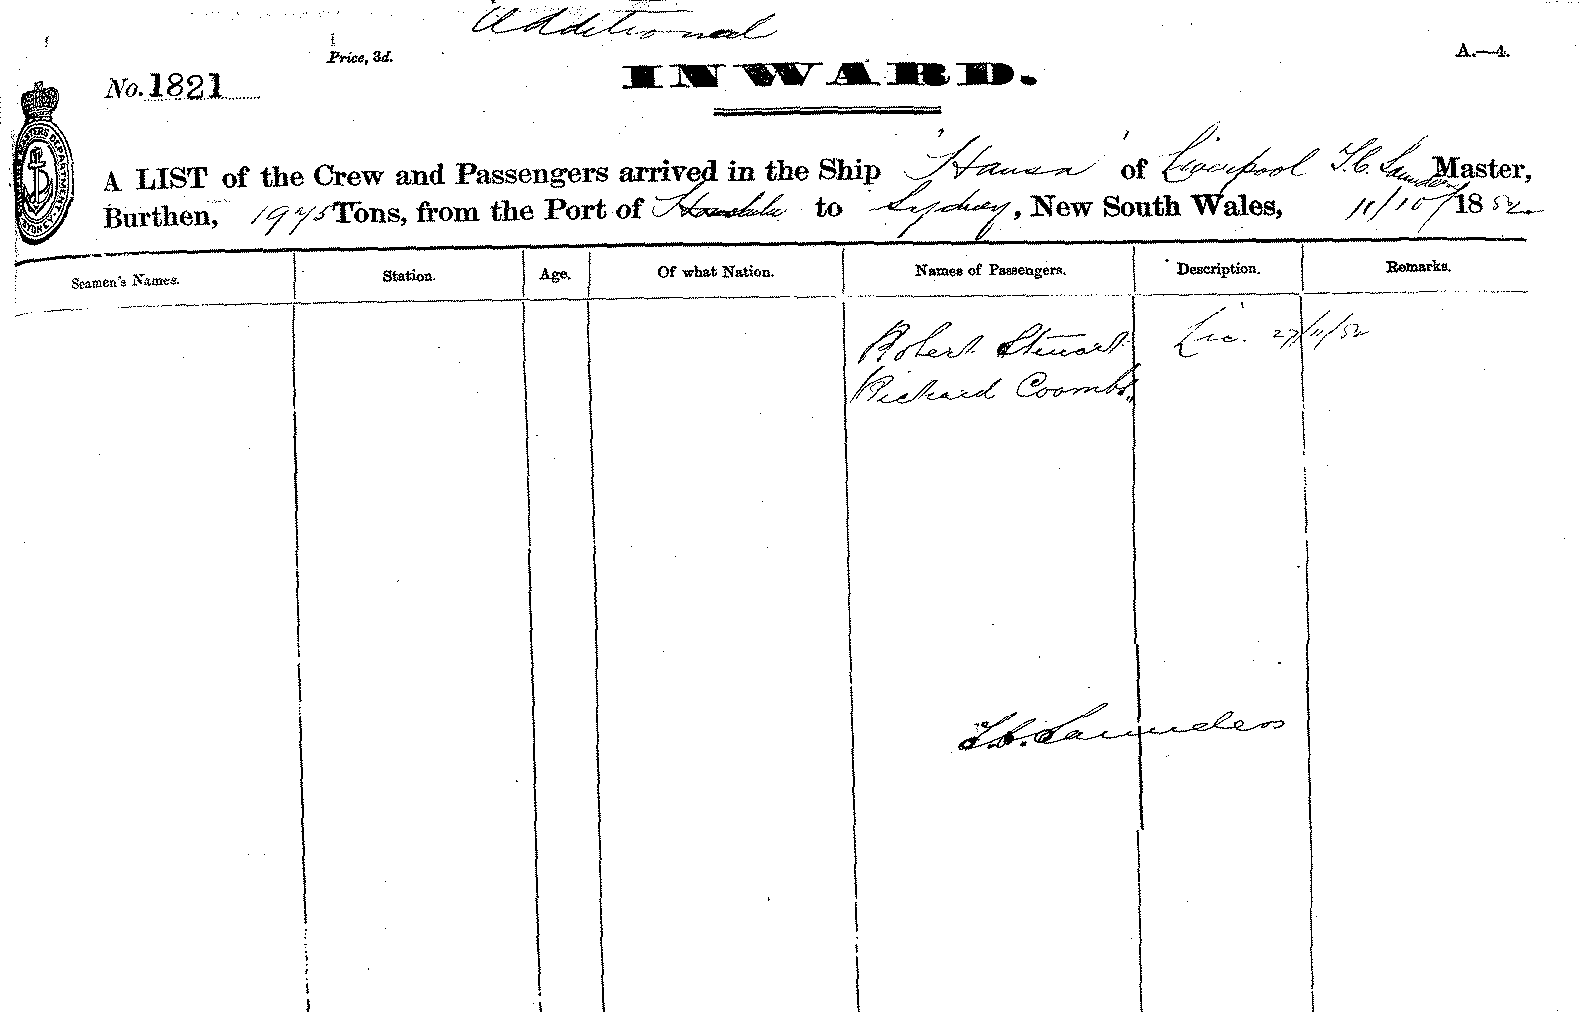 Additional
Price, 3d.
A.—4.
No. 1821
INWARD.
A LIST of the Crew and Passengers arrived in the Ship "Hansa" of Liverpool T.C. Saunders Master,
Burthen, 1975 Tons, from the Port of to Sydney, New South Wales, 11/10/1882
Seamen's Names. Station. Age. Of what Nation. Names of Passengers. Description. Remarks.
Robert Stewart Lic. 27/11/82
Richard Coombs
T.C. Saunders